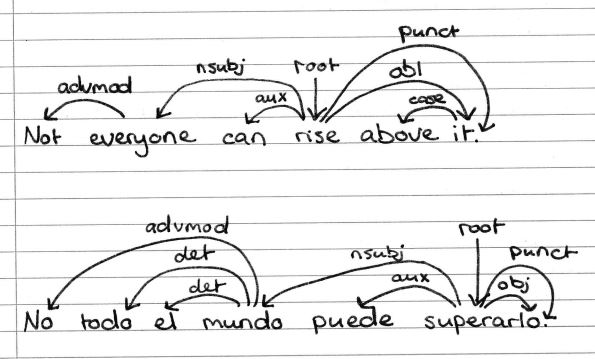 punct
nsubj root obl
advmod aux case
Not everyone can rise above it.
advmod root
det nsubj punct
det aux obj
No todo el mundo puede superarlo.